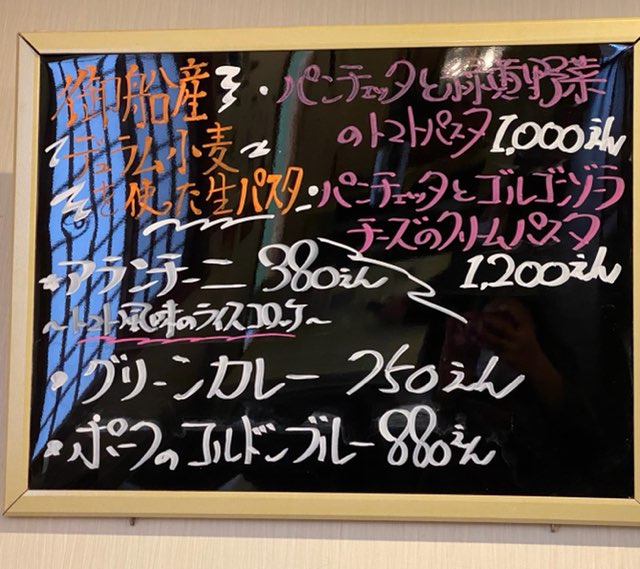 御船産
デュラム小麦
を使った生パスタ
・パンチェッタと緑黄野菜
のトマトパスタ 1,000えん
・パンチェッタとゴルゴンゾラ
チーズのクリームパスタ
1,200えん
・アランチーニ 380えん
~トマト風味のライスコロッケ~
・グリーンカレー 750えん
・ポークのコルドンブルー 880えん